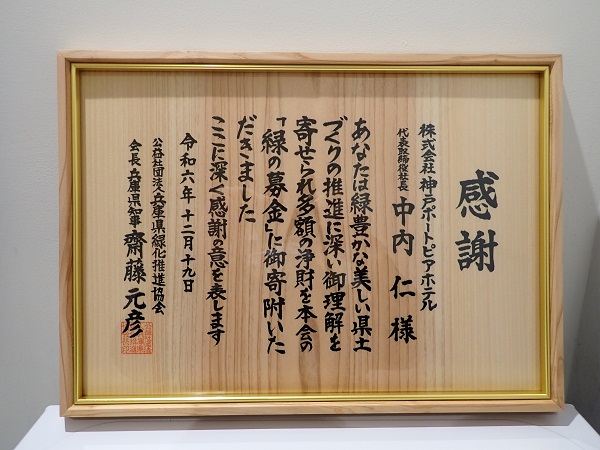 感謝
株式会社神戸ポートピアホテル
代表取締役社長 中内仁様
あなたは緑豊かな美しい県土
づくりの推進に深い御理解を
寄せられ多額の浄財を本会の
「緑の募金」に御寄附いた
だきました
ここに深く感謝の意を表します
令和六年十二月十九日
公益社団法人兵庫県緑化推進協会
会長兵庫県知事 齋藤元彦